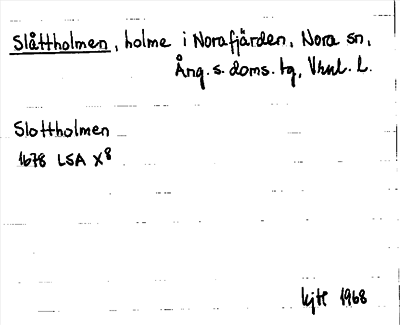 Slåttholmen, holme i Norafjärden, Nora sn,
Ång. s. doms. tg, Vnl. l.
Slottholmen
1678 LSA X8
1968